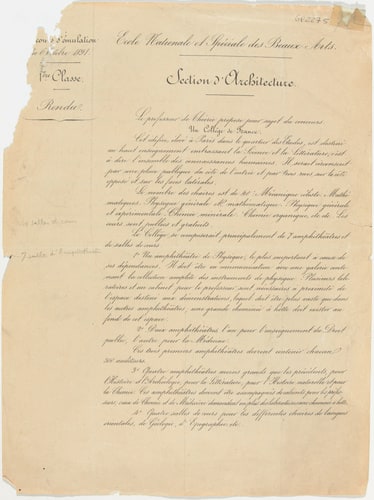 Ecole Nationale et Spéciale des Beaux-Arts.
d'émulation
Octobre 1891.
1ère Classe
Rendu
Section d'Architecture.
Le professeur de Théorie propose pour sujet du concours
Un Collège de France.
Cet édifice, élevé à Paris dans le quartier des Etudes, est destiné
au haut enseignement intéressant la Science et la Littérature, c'est
à dire l'ensemble des connaissances humaines. Il serait
par une place publique du côté de l'entrée et par trois rues sur le côté
opposé et sur les faces latérales.
Le nombre des chaires est de 41: Mécanique céleste, Mathé-
matiques, Physique générale et mathématique. Physique générale
et expérimentale. Chimie minérale. Chimie organique, etc. etc. Les
cours sont publics et gratuits.
Le Collège se composerait principalement de 7 amphithéâtres et
de salles de cours.
7 salles d'
1º Un amphithéâtre de Physique, le plus important à cause de
ses dépendances. Il doit être en communication avec une galerie conte-
nant la collection complète des instruments de physique. Plusieurs labo-
ratoires et un cabinet pour le professeur sont nécessaires à proximité de
l'espace destiné aux démonstrations, lequel doit être plus vaste que dans
les autres amphithéâtres; une grande cheminée à hotte doit exister au
fond de cet espace.
2º Deux amphithéâtres l'un pour l'enseignement du Droit
public, l'autre pour la Médecine.
Ces trois premiers amphithéâtres devront contenir chacun
300 auditeurs.
3º Quatre amphithéâtres moins grands que les précédents, pour
l'Histoire et l'Archéologie, pour la Littérature, pour l'Histoire naturelle et pour
la Chimie. Ces amphithéâtres devront être accompagnés de cabinets pour les profes-
seurs, ceux de Chimie et de Médecine de laboratoires avec cheminée à hotte.
4º Quatre salles de cours pour les différentes chaires de langues
orientales, de Géologie, d'Epigraphie, etc.